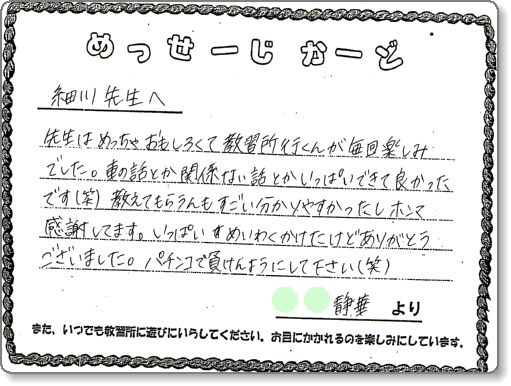 めっせーじかーど
細川先生へ
先生はめっちゃおもしろくて教習所行くんが毎回楽しみ
でした。車の話とか関係ない話とかいっぱいできて良かった
です(笑) 教えてもらうんもすごい分かりやすかったしホンマ
感謝してます。いっぱいめいわくかけたけどありがとう
ございました。パチンコで負けんようにして下さい(笑)
静華 より
また、いつでも教習所に遊びにいらしてください。お目にかかれるのを楽しみにしています。